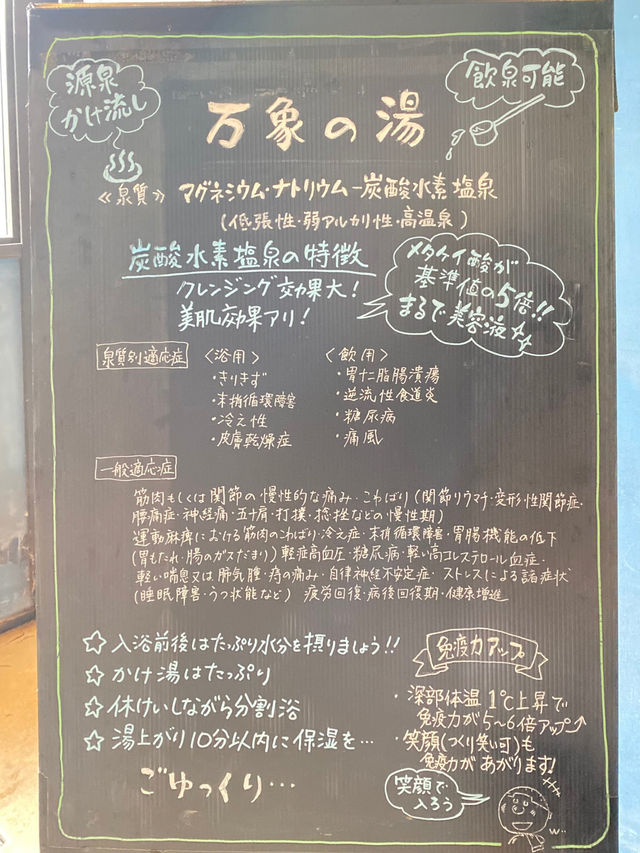 源泉
かけ流し
飲泉可能
万象の湯
≪泉質≫ マグネシウム・ナトリウム-炭酸水素塩泉
(低張性・弱アルカリ性・高温泉)
炭酸水素塩泉の特徴
クレンジング効果大!
美肌効果アリ!
メタケイ酸が
基準値の5倍!!
まるで美容液
泉質別適応症
<浴用>
・きりきず
・末梢循環障害
・冷え性
・皮膚乾燥症
<飲用>
・胃十二指腸潰瘍
・逆流性食道炎
・糖尿病
・痛風
一般適応症
筋肉もしくは関節の慢性的な痛み・こわばり(関節リウマチ・変形性関節症・
腰痛症・神経痛・五十肩・打撲・捻挫などの慢性期)
運動麻痺における筋肉のこわばり・冷え症・末梢循環障害・胃腸機能の低下
(胃もたれ・腸のガスだまり)軽症高血圧・糖尿病・軽い高コレステロール血症・
軽い喘息又は肺気腫・痔の痛み・自律神経不安定症・ストレスによる諸症状
(睡眠障害・うつ状態など) 疲労回復・病後回復期・健康増進
☆入浴前後はたっぷり水分を摂りましょう!!
☆かけ湯はたっぷり
☆休けいしながら分割浴
☆湯上がり10分以内に保湿を…
ごゆっくり…
免疫力アップ
・深部体温1℃上昇で
免疫力が5~6倍アップ↑
・笑顔(つくり笑い可)も
免疫力があがります!
笑顔で
入ろう
w…